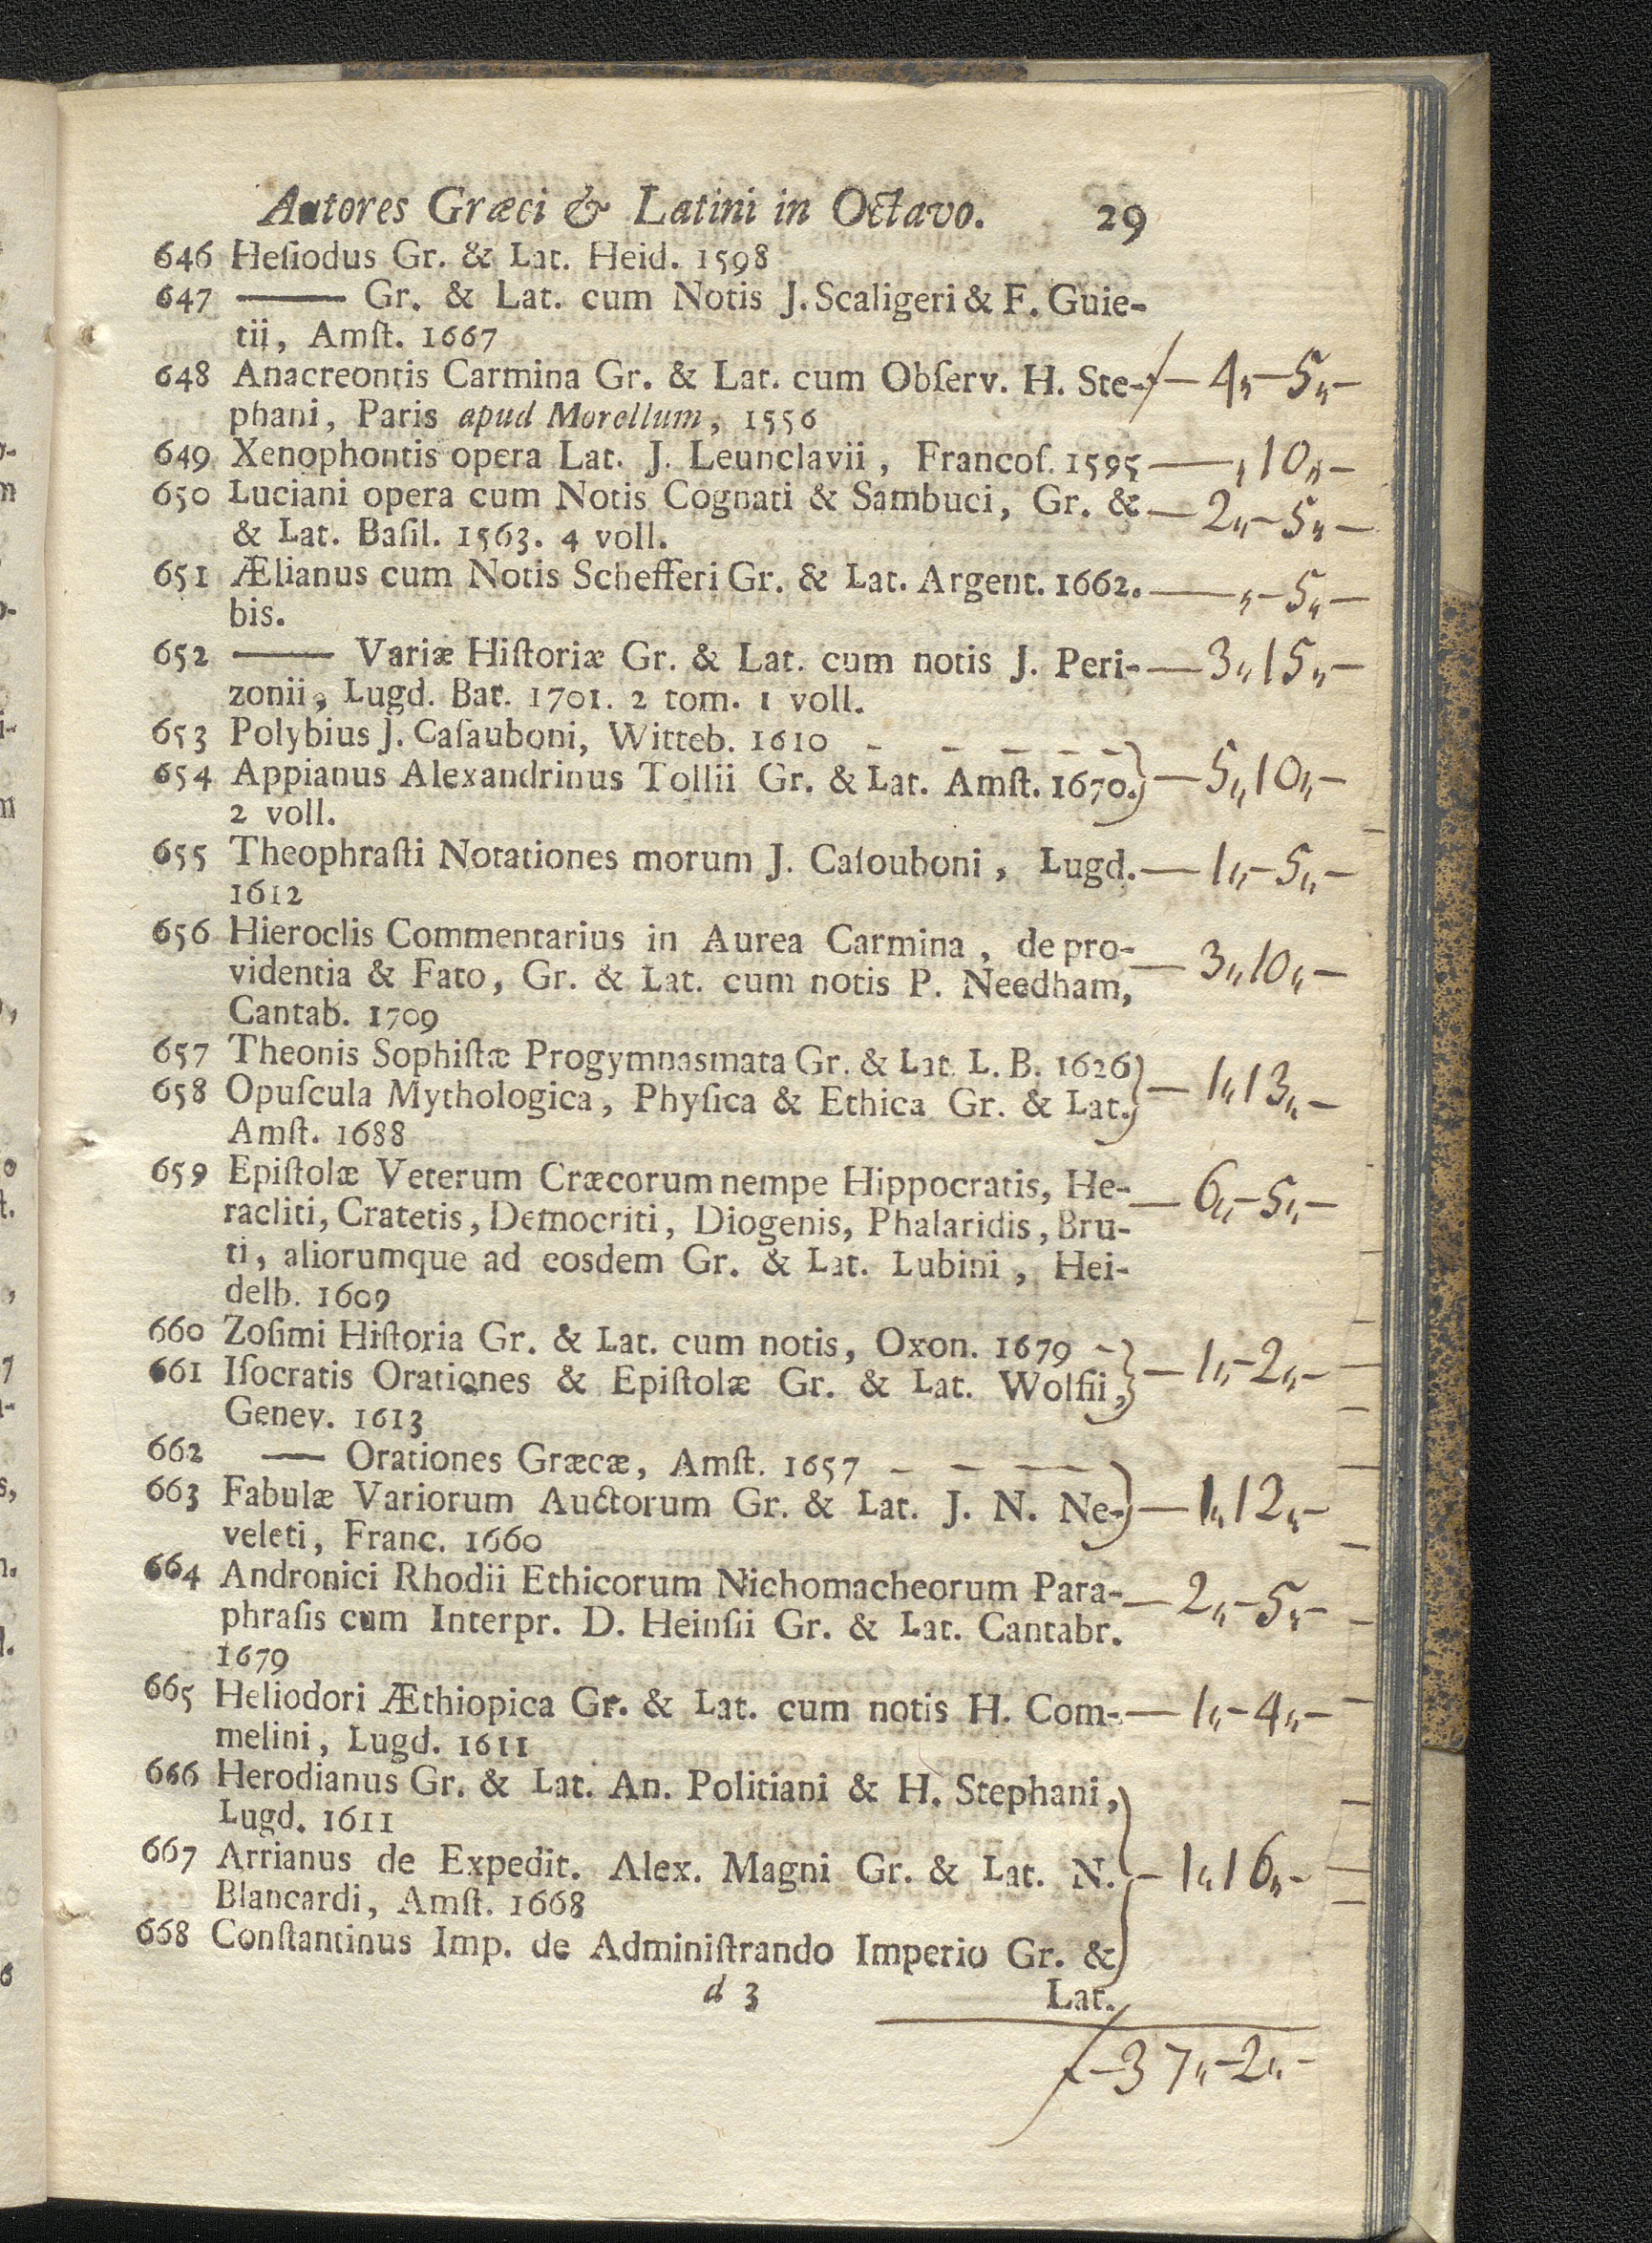 Autores Græci & Latini in Octavo. 29
646 Heſiodus Gr. & Lat. Heid. 1598
647 —— Gr. & Lat. cum Notis J. Scaligeri & F. Guie-
tii, Amſt. 1667
648 Anacreontis Carmina Gr. & Lat. cum Obſerv. H. Ste- ƒ — 4,,-5,,-
phani, Paris apud Morellum, 1556
649 Xenophontis opera Lat. J. Leunclavii, Francoſ. 1595 —— ,,10,,-
650 Luciani opera cum Notis Cognati & Sambuci, Gr. & — 2,,-5,,-
& Lat. Baſil. 1563. 4 voll.
651 Ælianus cum Notis Schefferi Gr. & Lat. Argent. 1662. —— ,,-5,,-
bis.
652 —— Variæ Hiſtoriæ Gr. & Lat. cum notis J. Peri- — 3,,15,,-
zonii, Lugd. Bat. 1701. 2 tom. 1 voll.
653 Polybius J. Caſauboni, Witteb. 1610 - - - - -
654 Appianus Alexandrinus Tollii Gr. & Lat. Amſt. 1670. } — 5,,10,,-
2 voll.
655 Theophraſti Notationes morum J. Caſouboni, Lugd. — 1,,-5,,-
1612
656 Hieroclis Commentarius in Aurea Carmina, de pro-
videntia & Fato, Gr. & Lat. cum notis P. Needham, — 3,,10,,-
Cantab. 1709
657 Theonis Sophiſtæ Progymnasmata Gr. & Lat. L. B. 1626
658 Opuſcula Mythologica, Phyſica & Ethica Gr. & Lat. } — 1,,13,,-
Amſt. 1688
659 Epiſtolæ Veterum Cræcorum nempe Hippocratis, He- — 6,,-5,,-
racliti, Cratetis, Democriti, Diogenis, Phalaridis, Bru-
ti, aliorumque ad eosdem Gr. & Lat. Lubini, Hei-
delb. 1609
660 Zoſimi Hiſtoria Gr. & Lat. cum notis, Oxon. 1679 -
661 Iſocratis Orationes & Epiſtolæ Gr. & Lat. Wolfii, } — 1,,-2,,-
Genev. 1613
662 —— Orationes Græcæ, Amſt. 1657 - - - -
663 Fabulæ Variorum Auctorum Gr. & Lat. J. N. Ne- } — 1,,12,,-
veleti, Franc. 1660
664 Andronici Rhodii Ethicorum Nichomacheorum Para- — 2,,-5,,-
phraſis cum Interpr. D. Heinſii Gr. & Lat. Cantabr.
1679
665 Heliodori Æthiopica Gr. & Lat. cum notis H. Com- — 1,,-4,,-
melini, Lugd. 1611
666 Herodianus Gr. & Lat. An. Politiani & H. Stephani,
Lugd. 1611
667 Arrianus de Expedit. Alex. Magni Gr. & Lat. N. } — 1,,16,,-
Blancardi, Amſt. 1668
668 Conſtantinus Imp. de Adminiſtrando Imperio Gr. &
d 3 Lat.
ƒ-37,,-2,,-